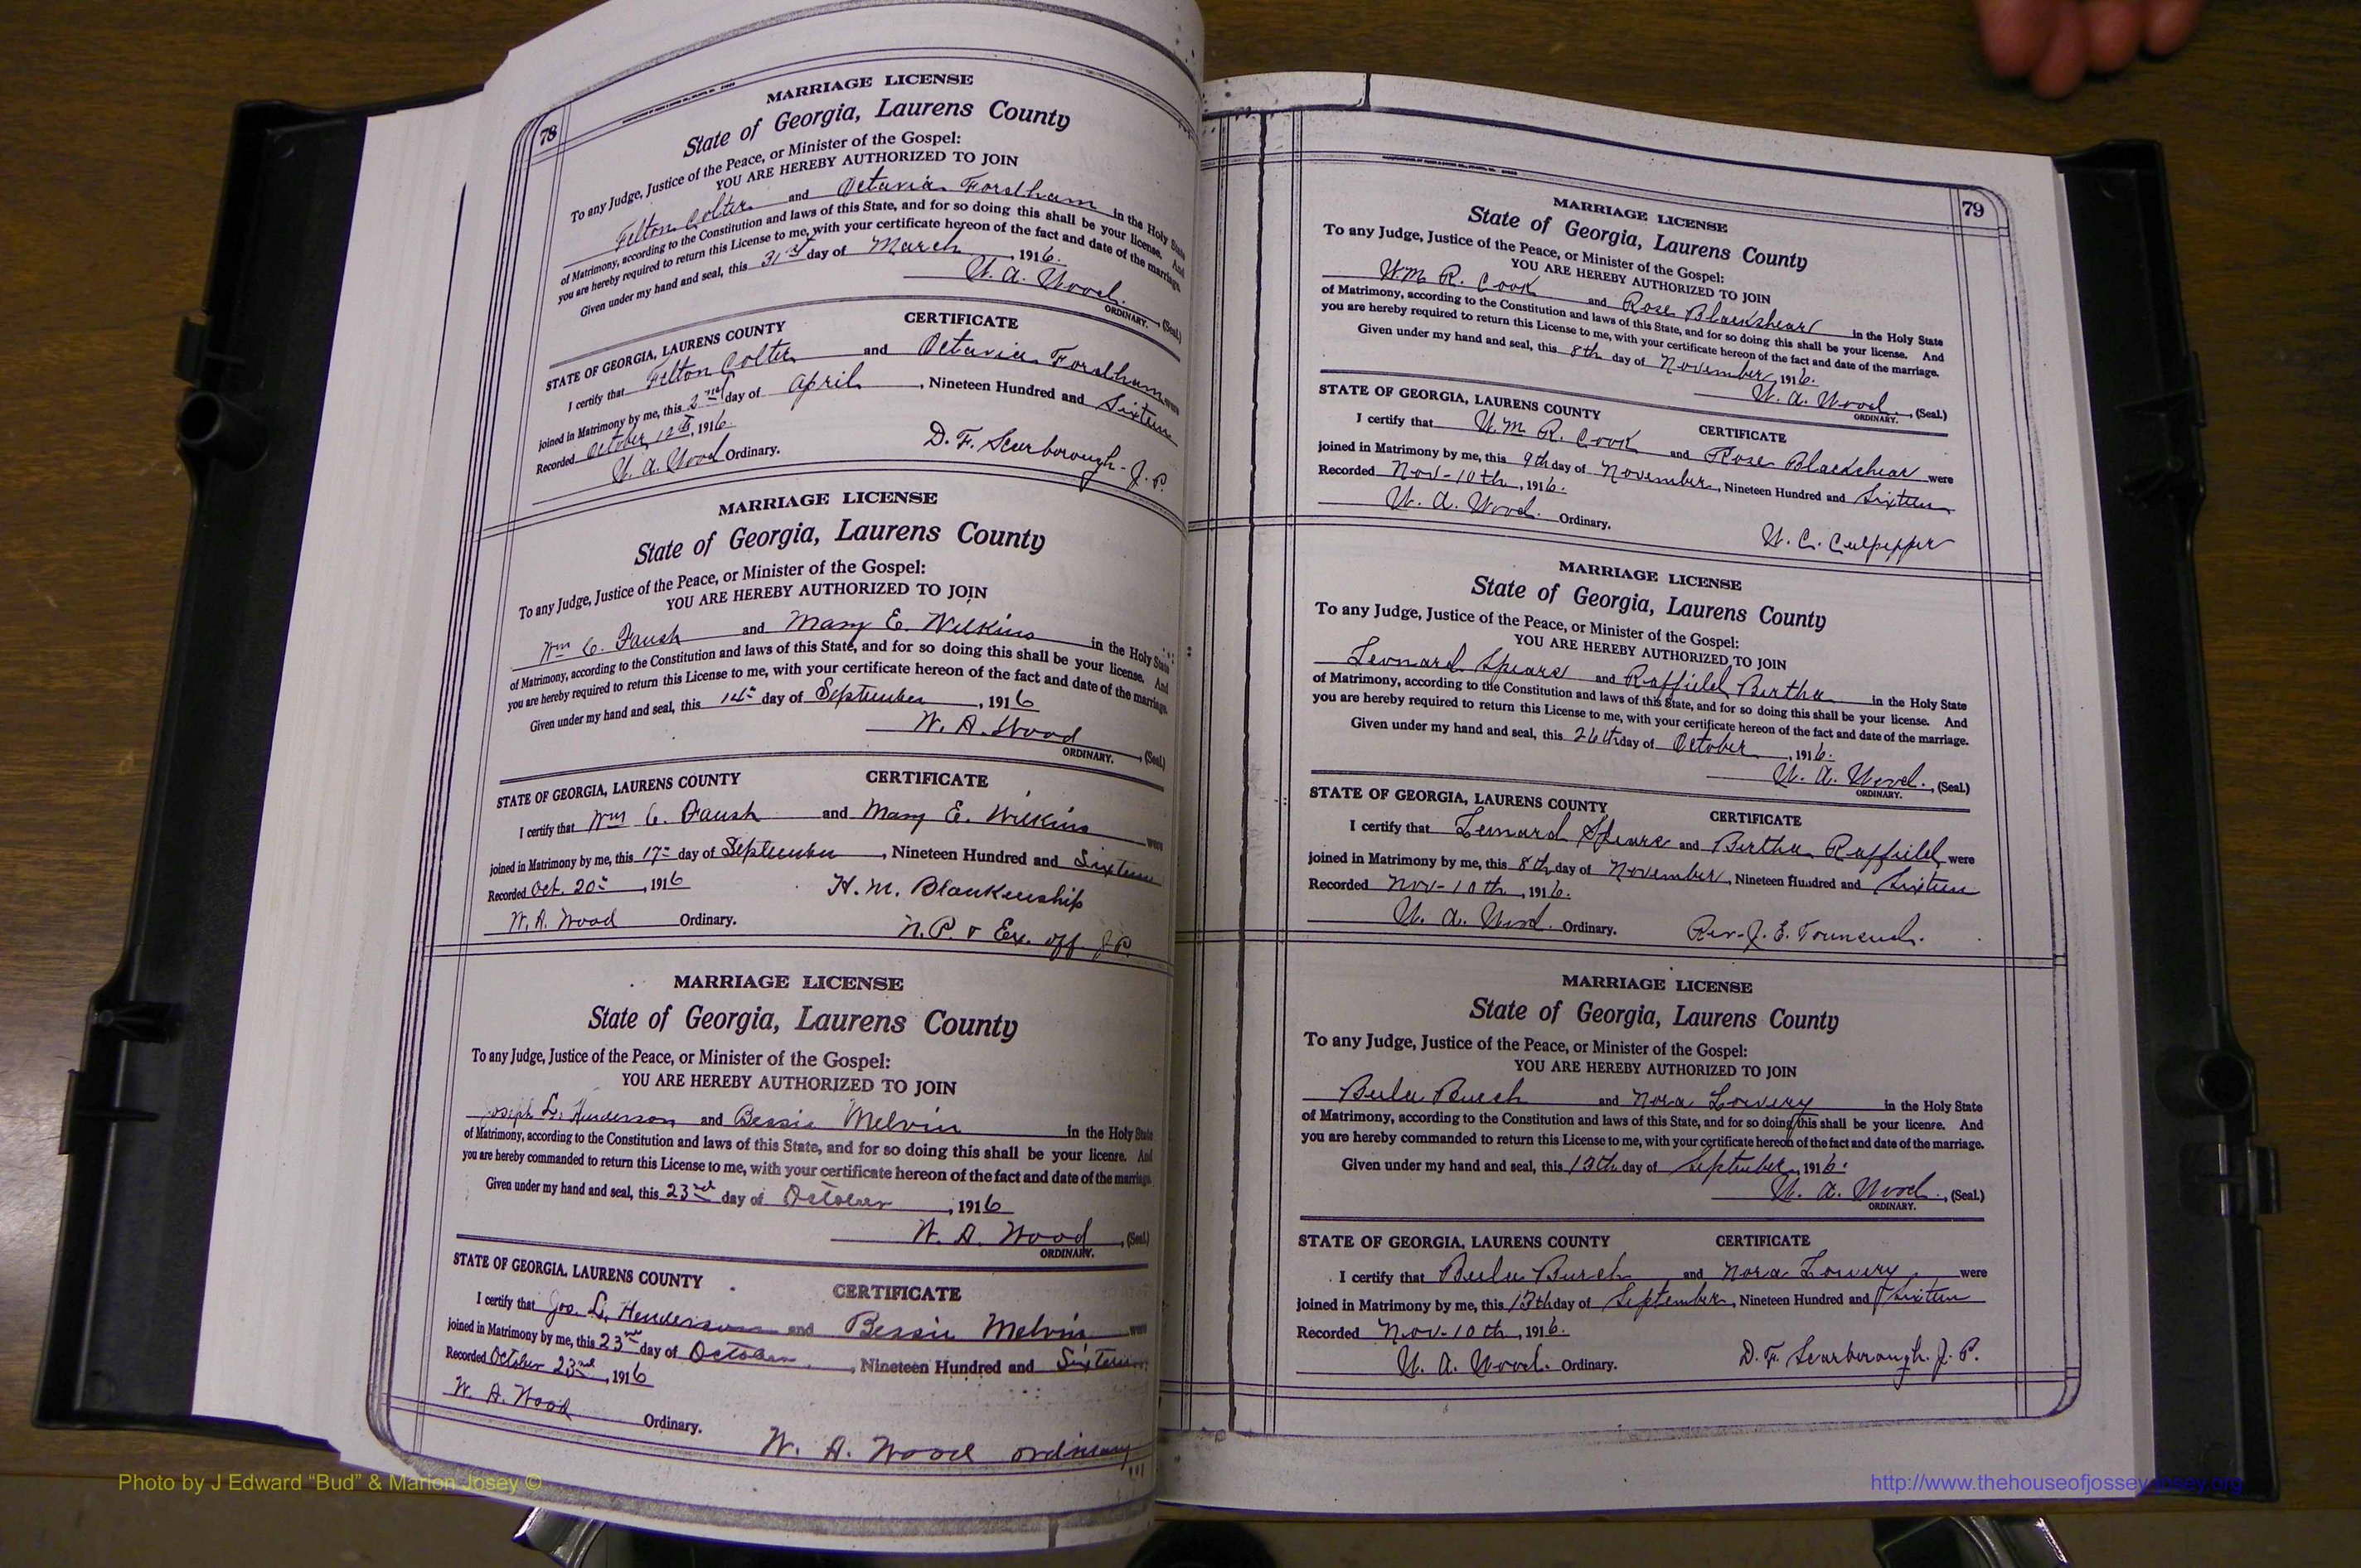 78
MARRIAGE LICENSE
State of Georgia, Laurens County
To any Judge, Justice of the Peace, or Minister of the Gospel:
YOU ARE HEREBY AUTHORIZED TO JOIN
Felton Colter and Octavia Fordham in the Holy State
of Matrimony, according to the Constitution and laws of this State, and for so doing this shall be your license. And
you are hereby required to return this License to me, with your certificate hereon of the fact and date of the marriage.
Given under my hand and seal, this 31st day of March, 1916.
W. A. Wood. (Seal.)
ORDINARY.
STATE OF GEORGIA, LAURENS COUNTY CERTIFICATE
I certify that Felton Colter and Octavia Fordham were
joined in Matrimony by me, this 2nd day of April, Nineteen Hundred and Sixteen
Recorded October 12th, 1916.
W. A. Wood Ordinary. D. F. Scarborough- J. P.
MARRIAGE LICENSE
State of Georgia, Laurens County
To any Judge, Justice of the Peace, or Minister of the Gospel:
YOU ARE HEREBY AUTHORIZED TO JOIN
Wm C. Faush and Mary E. Wilkins in the Holy State
of Matrimony, according to the Constitution and laws of this State, and for so doing this shall be your license. And
you are hereby required to return this License to me, with your certificate hereon of the fact and date of the marriage.
Given under my hand and seal, this 14th day of September, 1916
W. A. Wood (Seal.)
ORDINARY.
STATE OF GEORGIA, LAURENS COUNTY CERTIFICATE
I certify that Wm C. Faush and Mary E. Wilkins were
joined in Matrimony by me, this 17th day of September, Nineteen Hundred and Sixteen
Recorded Oct. 20th, 1916 H. M. Blankenship
W. A. Wood Ordinary. N. P. & Ex. off. J P.
MARRIAGE LICENSE
State of Georgia, Laurens County
To any Judge, Justice of the Peace, or Minister of the Gospel:
YOU ARE HEREBY AUTHORIZED TO JOIN
Joseph L. Henderson and Bessie Melvin in the Holy State
of Matrimony, according to the Constitution and laws of this State, and for so doing this shall be your license. And
you are hereby commanded to return this License to me, with your certificate hereon of the fact and date of the marriage.
Given under my hand and seal, this 23rd day of October, 1916
W. A. Wood, (Seal.)
ORDINARY.
STATE OF GEORGIA, LAURENS COUNTY CERTIFICATE
I certify that Jos. L. Henderson and Bessie Melvin were
joined in Matrimony by me, this 23rd day of October, Nineteen Hundred and Sixteen
Recorded October 23rd, 1916
W. A. Wood Ordinary.
W. A. Wood ordinary
79
MARRIAGE LICENSE
State of Georgia, Laurens County
To any Judge, Justice of the Peace, or Minister of the Gospel:
YOU ARE HEREBY AUTHORIZED TO JOIN
W.m R. Cook and Rose Blackshear in the Holy State
of Matrimony, according to the Constitution and laws of this State, and for so doing this shall be your license. And
you are hereby required to return this License to me, with your certificate hereon of the fact and date of the marriage.
Given under my hand and seal, this 8th day of November, 1916.
W. A. Wood., (Seal.)
ORDINARY.
STATE OF GEORGIA, LAURENS COUNTY CERTIFICATE
I certify that W.m R. Cook and Rose Blackshear were
joined in Matrimony by me, this 9th day of November, Nineteen Hundred and Sixteen
Recorded Nov-10th, 1916.
W. A. Wood. Ordinary. W. C. Culpepper
MARRIAGE LICENSE
State of Georgia, Laurens County
To any Judge, Justice of the Peace, or Minister of the Gospel:
YOU ARE HEREBY AUTHORIZED TO JOIN
Leonard Spears and Raffield Bertha in the Holy State
of Matrimony, according to the Constitution and laws of this State, and for so doing this shall be your license. And
you are hereby required to return this License to me, with your certificate hereon of the fact and date of the marriage.
Given under my hand and seal, this 26th day of October, 1916.
W. A. Wood., (Seal.)
ORDINARY.
STATE OF GEORGIA, LAURENS COUNTY, CERTIFICATE
I certify that Lemard Spears and Bertha Raffield were
joined in Matrimony by me, this 8th day of November, Nineteen Hundred and Sixteen
Recorded Nov-10th, 1916.
W. A. Wood. Ordinary. Rev. J. E. Townsend.
MARRIAGE LICENSE
State of Georgia, Laurens County
To any Judge, Justice of the Peace, or Minister of the Gospel:
YOU ARE HEREBY AUTHORIZED TO JOIN
Beulu Burch and Nora Lowery in the Holy State
of Matrimony, according to the Constitution and laws of this State, and for so doing this shall be your license. And
you are hereby commanded to return this License to me, with your certificate hereon of the fact and date of the marriage.
Given under my hand and seal, this 13th day of September, 1916.
W. A. Wood., (Seal.)
ORDINARY.
STATE OF GEORGIA, LAURENS COUNTY CERTIFICATE
I certify that Beulu Burch and Nora Lowery were
joined in Matrimony by me, this 13th day of September, Nineteen Hundred and Sixteen
Recorded Nov-10th, 1916.
W. A. Wood. Ordinary. D. F. Scarborough. J. P.
Photo by J Edward “Bud” & Marion Josey ©
http://www.thehouseofjossey-josey.org